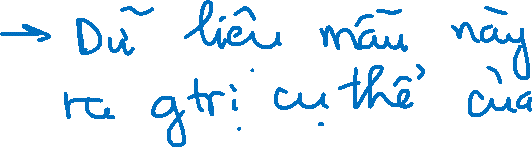 → Dữ liệu mẫu này
ra gtrị cụ thể của